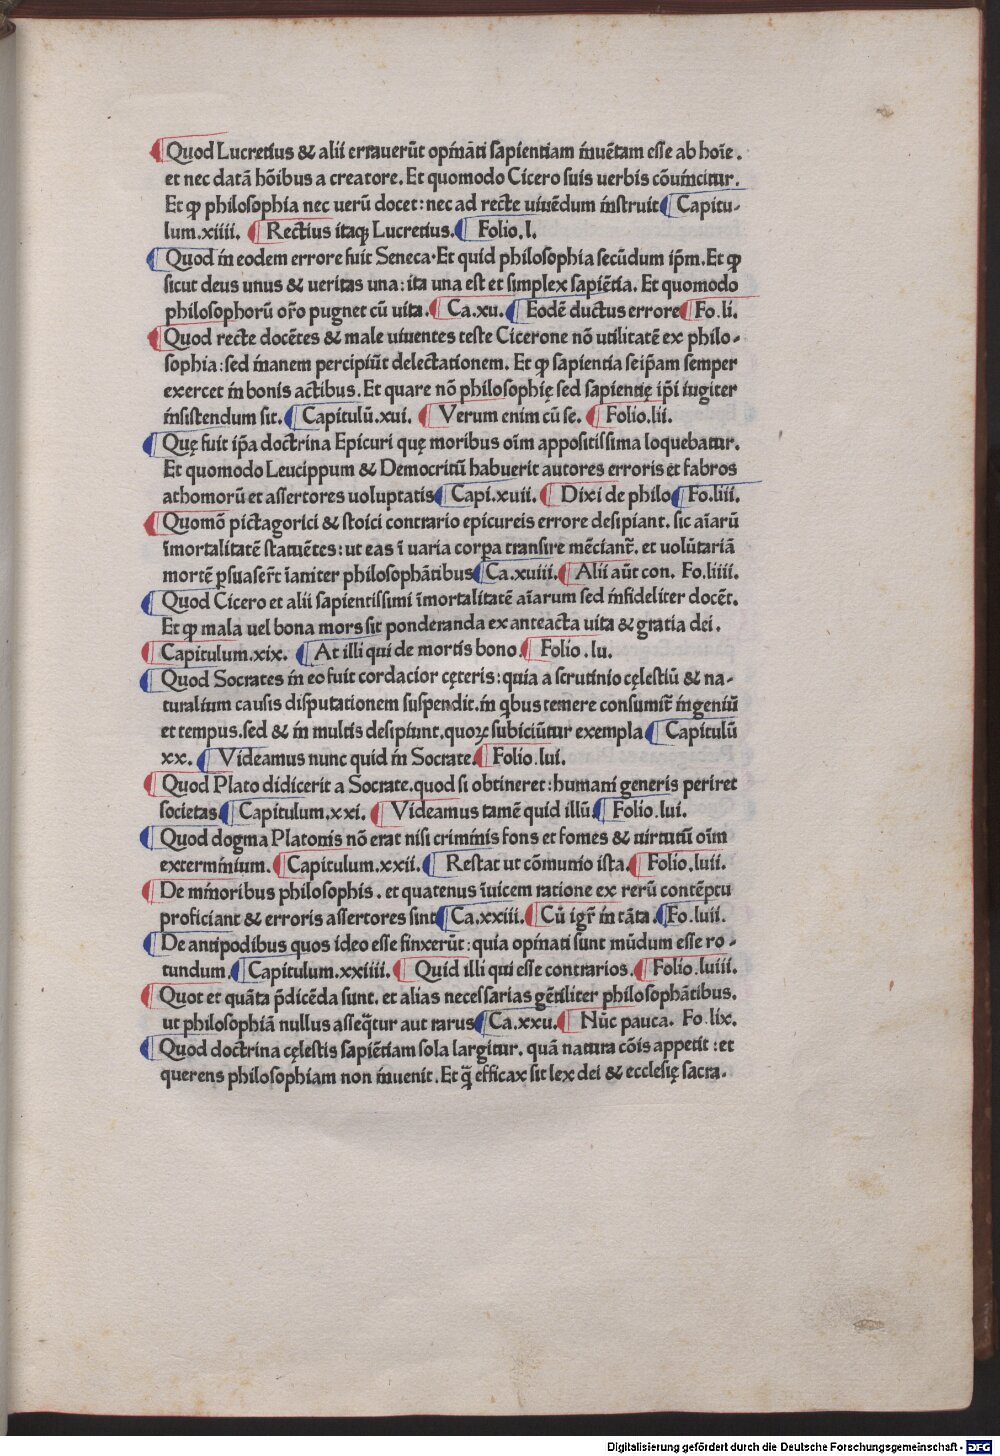 Quod Lucretius & alii errauerūt opīnāti sapientiam īnuētam esse ab hoīe.
et nec datā hōibus a creatore. Et quomodo Cicero suis uerbis cōuīncitur.
Et ꝙ philosophia nec uerū docet: nec ad recte uiuēdum īnstruit Capitu-
lum.xiiii. Rectius itaqꝫ Lucretius. Folio.l.
Quod īn eodem errore fuit Seneca. Et quid philosophia secūdum ip̄m. Et ꝙ
sicut deus unus & ueritas una: ita una est et simplex sapiētia. Et quomodo
philosophorū or̄o pugnet cū uita. Ca.xu. Eodē ductus errore Fo.li.
Quod recte docētes & male uiuentes teste Cicerone nō utilitatē ex philo-
sophia: sed īnanem percipiūt delectationem. Et ꝙ sapientia seip̄am semper
exercet īn bonis actibus. Et quare nō philosophię sed sapientię ip̄i iugiter
īnsistendum sit. Capitulū.xui. Verum enim cū se. Folio.lii.
Quę fuit ip̄a doctrina Epicuri quę moribus oīm appositissima loquebatur.
Et quomodo Leucippum & Democritū habuerit autores erroris et fabros
athomorū et assertores uoluptatis Capi.xuii. Dixi de philo Fo.liii.
Quomō pictagorici & stoici contrario epicureis errore desipiant. sic aīarū
īmortalitatē statuētes: ut eas ī uaria corꝑa transire mēciant̄. et uolūtariā
mortē ꝑsuaser̄t īaniter philosophātibus Ca.xuiii. Alii aūt con. Fo.liiii.
Quod Cicero et alii sapientissimi īmortalitatē aīarum sed īnfideliter docēt.
Et ꝙ mala uel bona mors sit ponderanda ex anteacta uita & gratia dei.
Capitulum.xix. At illi qui de mortis bono. Folio.lu.
Quod Socrates īn eo fuit cordacior cęteris: quia a scrutinio cęlestiū & na-
turalium causis disputationem suspendit. īn q̄bus temere consumit̄ īngeniū
et tempus. sed & īn multis desipiunt. quoꝝ subiciūtur exempla Capitulū
xx. Videamus nunc quid īn Socrate. Folio.lui.
Quod Plato didicerit a Socrate. quod si obtineret: humani generis periret
societas Capitulum.xxi. Videamus tamē quid illū. Folio.lui.
Quod dogma Platonis nō erat nisi crimīnis fons et fomes & uirtutū oīm
extermīnium. Capitulum.xxii. Restat ut cōmunio ista. Folio.luii.
De mīnoribus philosophis. et quatenus īuicem ratione ex rerū contēptu
proficiant & erroris assertores sint Ca.xxiii. Cū igr̄ īn tāta. Fo.luii.
De antipodibus quos ideo esse finxerūt: quia opīnati sunt mūdum esse ro-
tundum. Capitulum.xxiiii. Quid illi qui esse contrarios. Folio.luiii.
Quot et quāta p̄dicēda sunt. et alias necessarias gētiliter philosophātibus.
ut philosophiā nullus asseq̄tur aut rarus Ca.xxu. Nūc pauca. Fo.lix.
Quod doctrina cęlestis sapiētiam sola largitur. quā natura cōis appetit: et
querens philosophiam non īnuenit. Et q̄ efficax sit lex dei & ecclesię sacra.
Digitalisierung gefördert durch die Deutsche Forschungsgemeinschaft - DFG